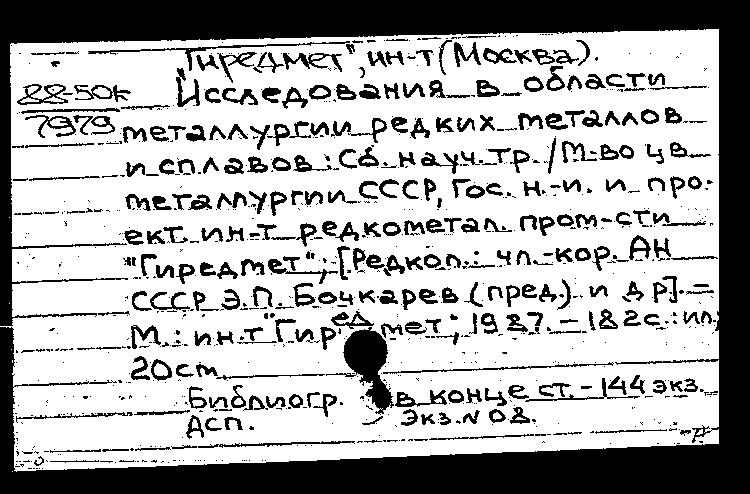 "Гиредмет", ин-т (Москва).
88-50к Исследования в области
7979 металлургии редких металлов
и сплавов : Сб. науч. тр. / М-во цв.
металлургии СССР, Гос. н.-и. и про-
ект. ин-т редкометал. пром-сти
"Гиредмет"; [Редкол.: чл.-кор. АН
СССР Э.П. Бочкарев (пред.) и др]. -
М. : ин-т "Гиредмет", 1987. - 182 с. : ил;
20 см.
Библиогр. в конце ст. - 144 экз.
ДСП. Экз. N 08.